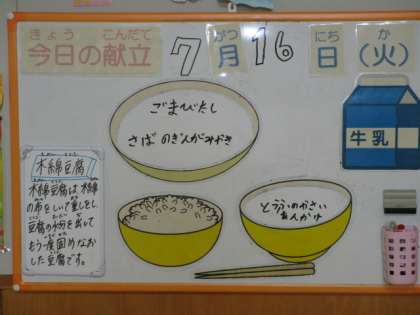 きょう こんだて
今日の献立
7
がつ
月
16
にち
日
か
(火)
ごまびたし
さばのぎんがみやき
牛乳
木綿豆腐
木綿豆腐は木綿
の布をしいて重しをし
豆腐の水分を出して
もう一度固めなお
した豆腐です。
とうふのやさい
あんかけ